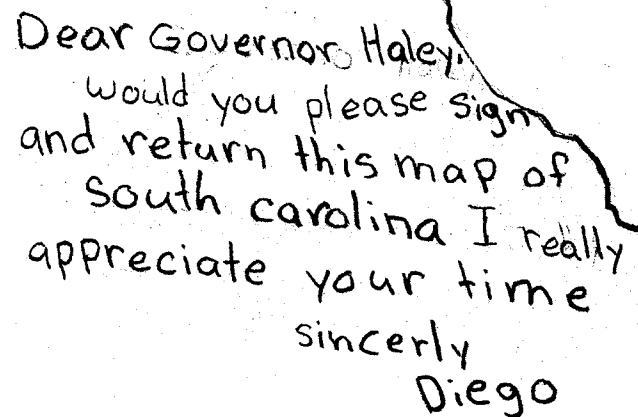 Dear Governor Haley,
would you please sign
and return this map of
south carolina I really
appreciate your time
sincerly
Diego